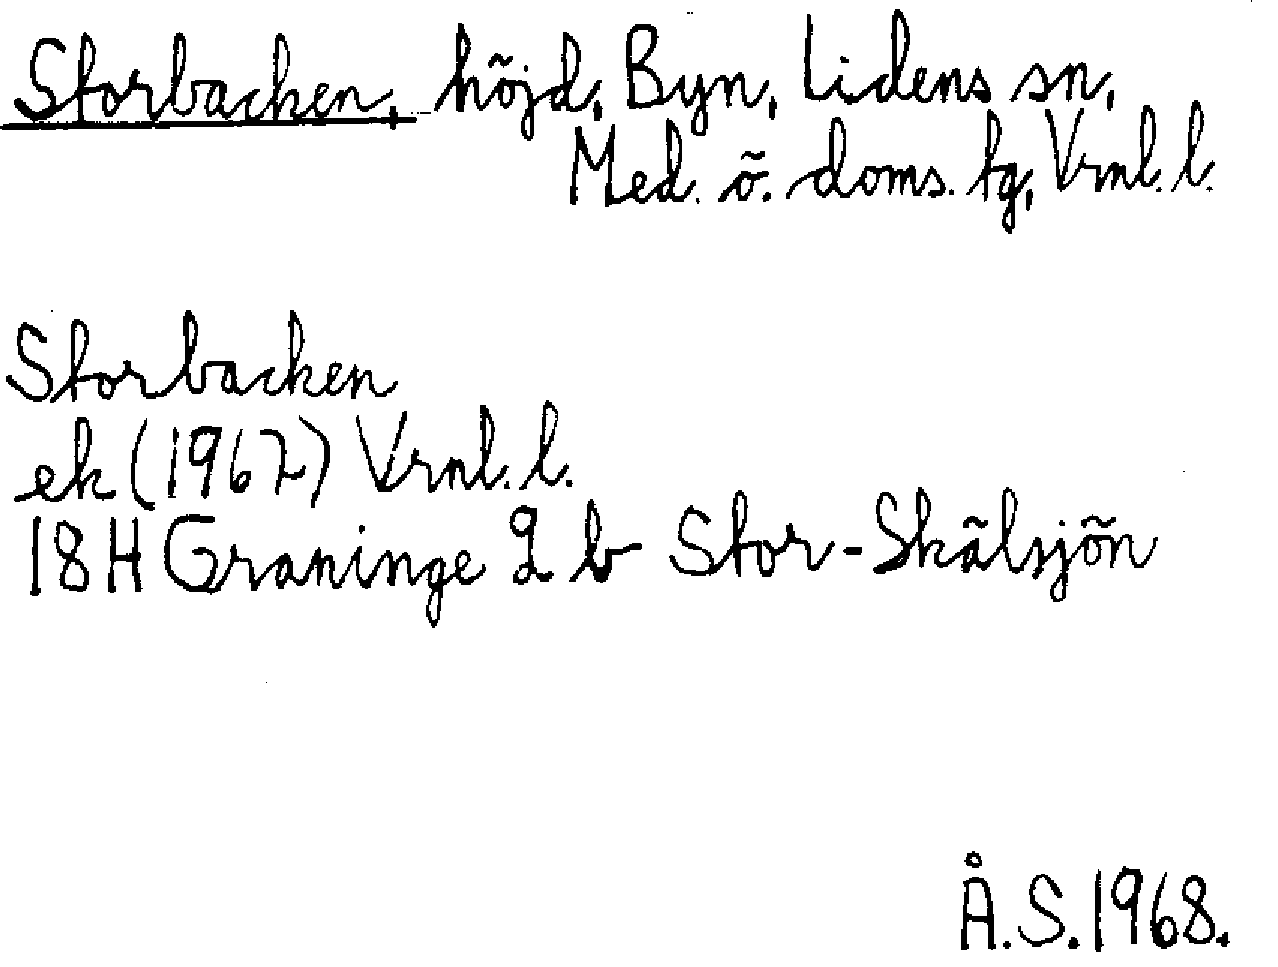 Storbacken, höjd, Byn, Lidens sn,
Med. ö. doms. tg, Vrnl. l.
Storbacken
ek (1967) Vrnl. l.
18H Graninge 2 b Stor-Skälsjön
Å.S.1968.